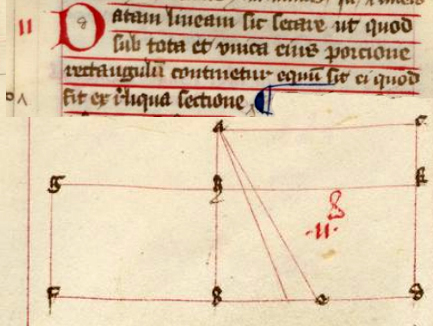 11
Datam lineam sic secare ut quod
sub tota et unica eius porcione
rectangulū continetur equū sit ei quod
fit ex reliqua sectione
a c
g h k
8
11
f b e d